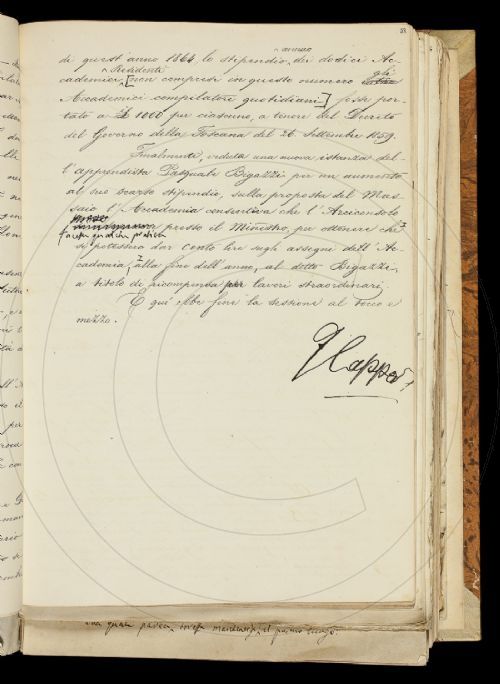 di quest'anno 1864, lo stipendio annuo dei dodici Ac-
cademici Residenti [non compresi in questo numero gli
Accademici compilatori quotidiani] fosse por-
tato a £ 1000 per ciascuno, a tenore del Decreto
del Governo della Toscana del 26 Settembre 1859.
Finalmente, veduta una nuova istanza del-
l'apprendista Pasquale Bigazzi per un aumento
al suo scarso stipendio, sulla proposta del Mas-
saio l'Accademia consentiva che l'Arciconsolo
facesse qualche pratica presso il Ministro, per ottenere che
si potessero dar cento lire sugli assegni dell'Ac-
cademia, alla fine dell'anno, al detto Bigazzi,
a titolo di ricompensa per lavori straordinari.
E qui ebbe fine la sessione al tocco e
mezzo.